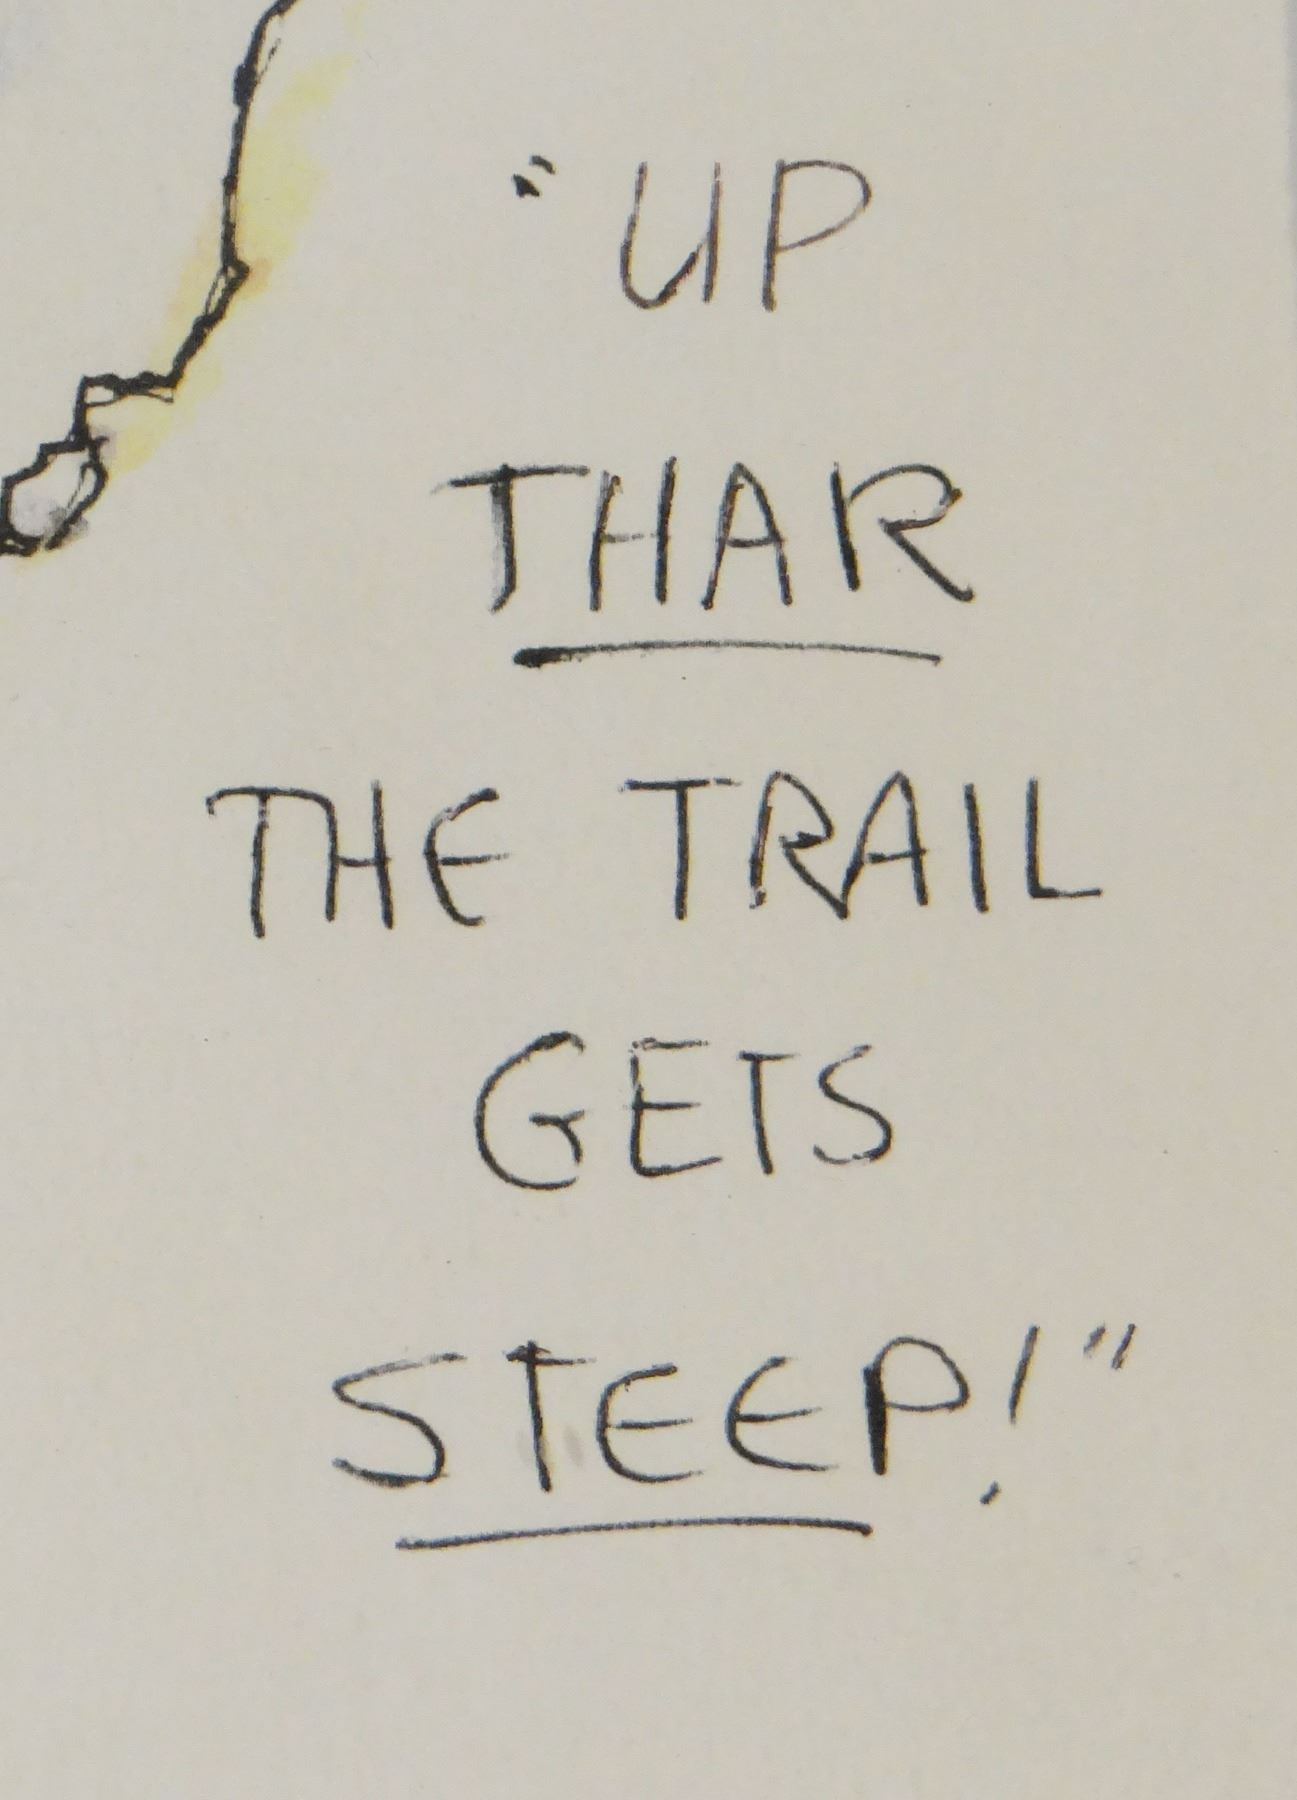 "UP
THAR
THE TRAIL
GETS
STEEP!"